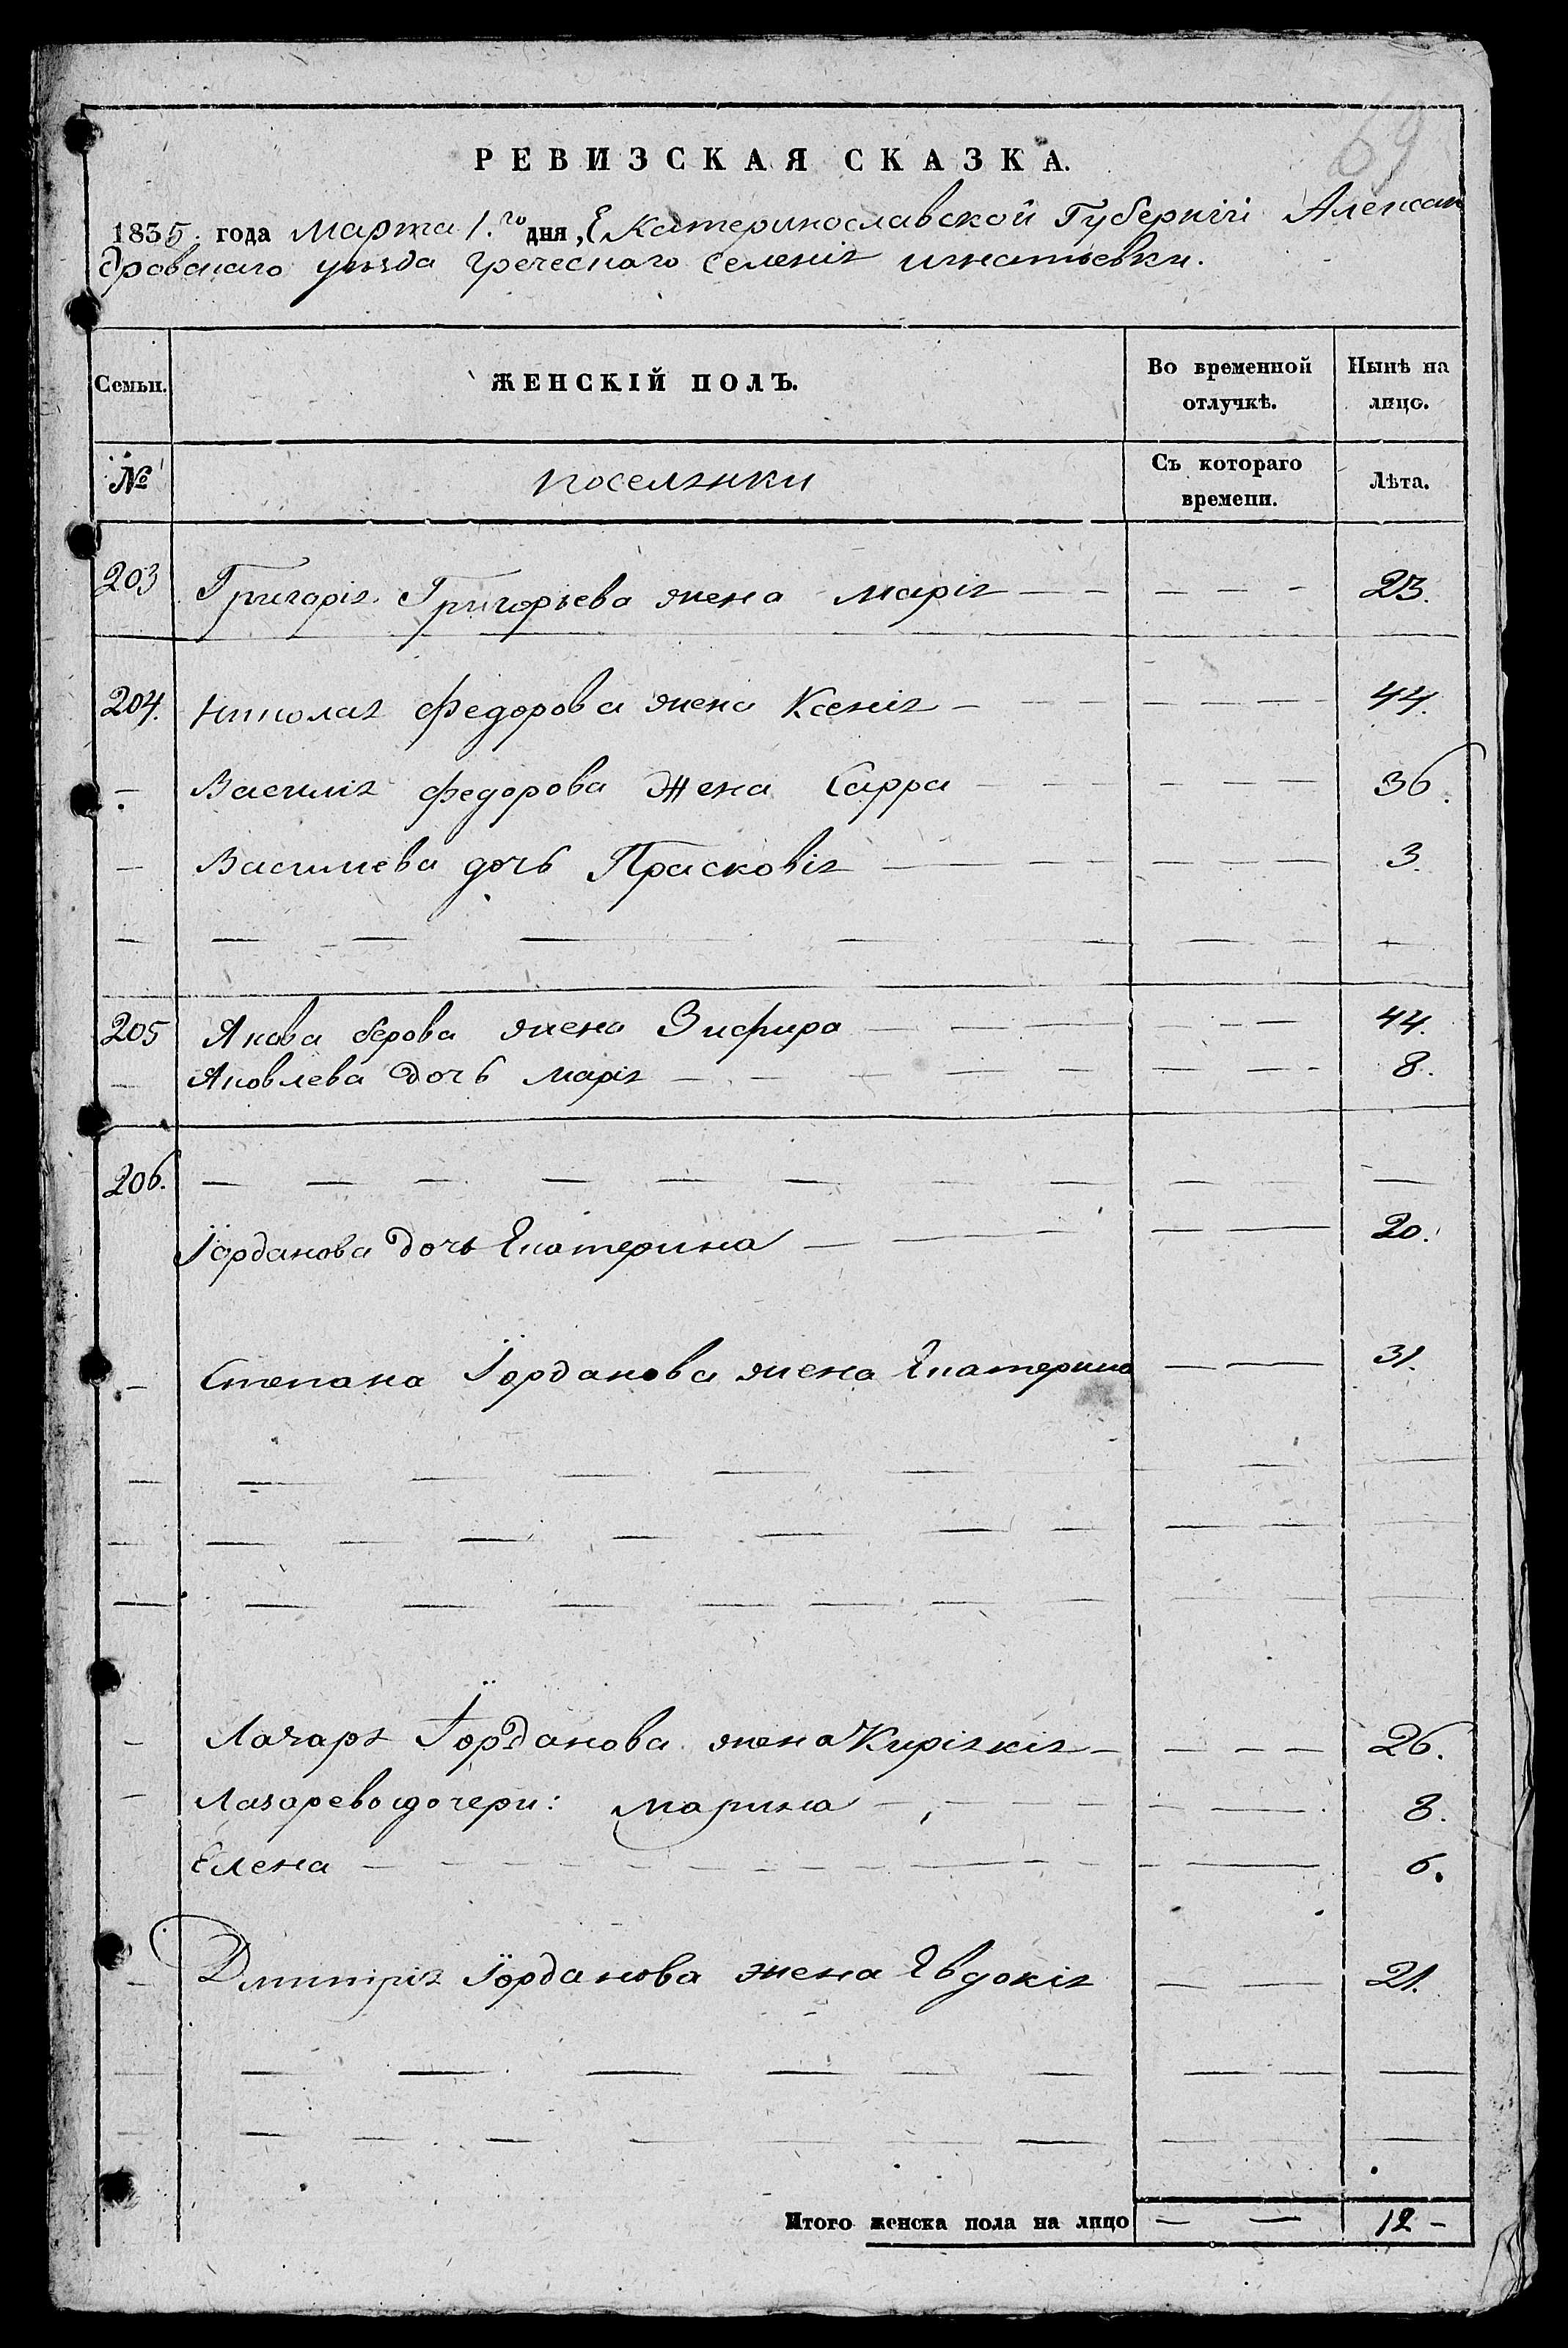 69
РЕВИЗСКАЯ СКАЗКА.
1835 года марта 1.го дня, Екатеринославской Губерніи Алексан
дровскаго уѣзда греческаго селенія игнатьевки.
Семьи. ЖЕНСКІЙ ПОЛЪ. Во временной отлучкѣ. Нынѣ на лицо.
№ поселянки Съ котораго времени. Лѣта.
203 Григорія Григорьева жена марія — — — — — 23.
204. Николая федорова жена Ксенія — — — — — 44.
— Василія федорова жена Сарра — — — — — 36.
— Василиева дочь Прасковія — — — — — 3.
— — — — — — — — —
205 Якова берова жена Зифира — — — — — 44.
— Яковлева дочь марія — — — — — 8.
206. — — — — — — — — — —
Іорданова дочь Екатерина — — — — — 20.
— Степана Іорданова жена Екатерина — — 31.
— — — — — — — —
— — — — — — — — —
— — — — — — — — —
— Лазаря Іорданова жена Кирiякія — — — — 26.
— Лазарева дочери: марина — — — — — 8.
Елена — — — — — — — 6.
— Дмитрія Іорданова жена Евдокія — — 21.
— — — — — — — — —
— — — — — — — — —
Итого женска пола на лицо — — 12 —